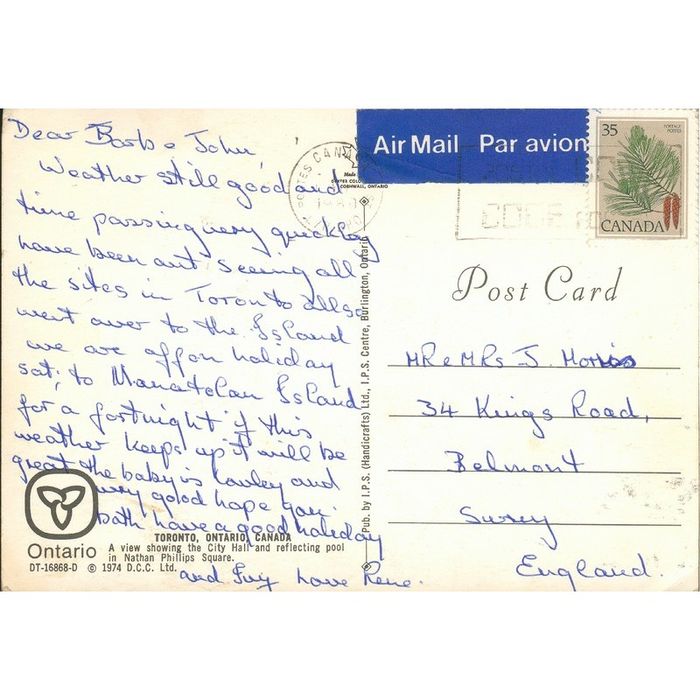 Dear Barb & John,
Weather still good and
time passing very quickly
have been out seeing all
the sites in Toronto allso
went over to the Island
we are off on holiday
sat, to Manatolan Island
for a fortnight if this
weather keeps up it will be
great the baby is lovley and
very good hope you
both have a good holiday
and love Rene.
TORONTO, ONTARIO, CANADA
A view showing the City Hall and reflecting pool
in Nathan Phillips Square.
Ontario
DT-16868-D © 1974 D.C.C. Ltd.
POSTES CANADA
Made
DEXTER COLO
CORNWALL, ONTARIO
Pub. by I.P.S. (Handicrafts) Ltd., I.P.S. Centre, Burlington, Ontario
Air Mail Par avion
35
POSTAGE
POSTES
CANADA
CODE
Post Card
MR & MRS J. Morris
34 Kings Road,
Belmont
Surrey
England.